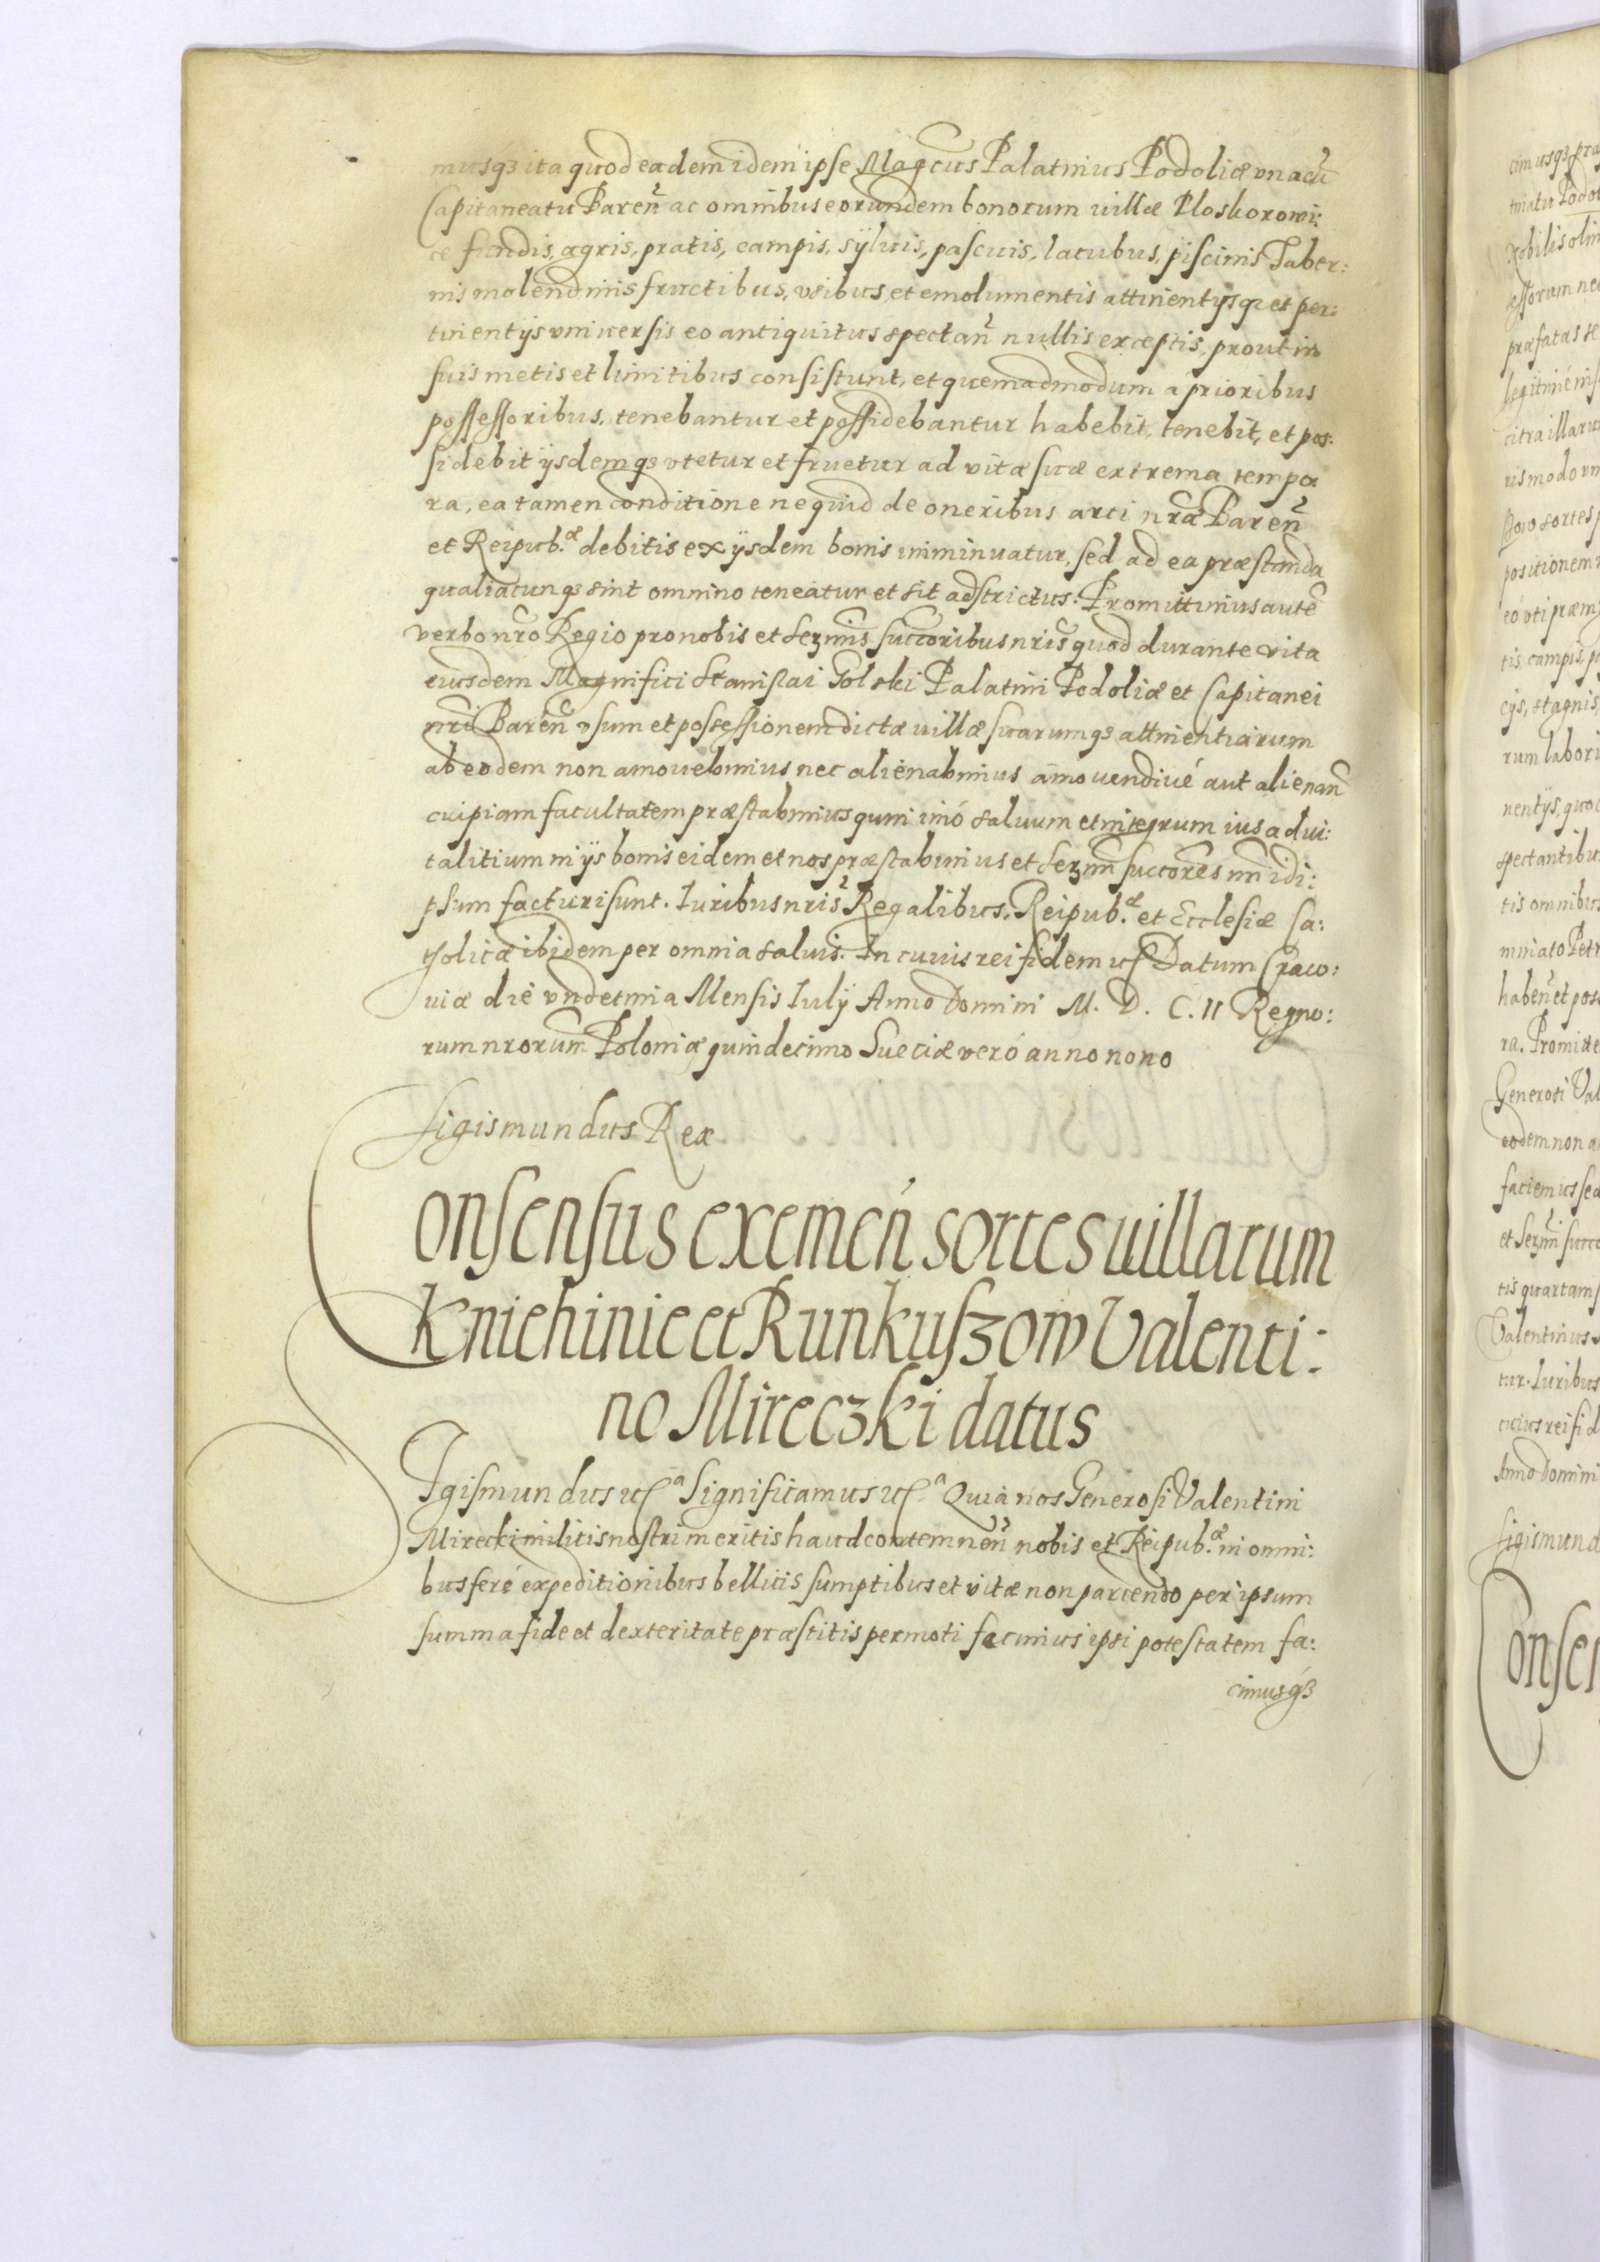 musq3 ita quod eadem idem ipse Magcus Palatinus Podoliæ vna cũ
Capitaneatu Bareñ ac omnibus eorundem bonorum villæ Ploskorowi:
ce fundis, agris, pratis, campis, sÿluis, pascuis, lacubus, piscinis Taber:
nis molendinis fructibus, vsibus, et emolumentis attinentÿsq3 et per:
tinentÿs vniuersis eo antiquitus spectañ nullis exceptis, prout in
suis metis et limitibus consistunt, et quemadmodum a prioribus
possessoribus, tenebantur et possidebantur habebit, tenebit, et pos:
sidebit ÿsdemq3 vtetur et fruetur ad vitæ suæ extrema tempo
ra, ea tamen conditione ne quid de oneribus arci nræ Bareñ
et Reipub.æ debitis ex ÿsdem bonis imminuatur, sed ad ea præstanda
qualiacunq3 sint omnino teneatur et sit adstrictus. Promittimus autẽ
verbo nro Regio pro nobis et Sezmis succoribus nris quod durante vita
eiusdem Magnifici Stanislai Golski Palatini Podoliæ et Capitanei
nri Bareñ vsum et possessionem dictæ villæ suarumq3 attinentiarum
ab eodem non amouebimus nec alienabimus amouendiué aut alienañ
cuipiam facultatem præstabimus quin imó saluum et integrum ius adui:
talitium in ÿs bonis eidem et nos præstabimus et Sezmi succores nri idi:
psum facturi sunt. Iuribus nris Regalibus, Reipub.æ et Ecclesiæ Ca:
tholicæ ibidem per omnia saluis. In cuius rei fidem uc Datum Craco:
uiæ die vndecima Mensis Iulÿ Anno Domini M. D. C. II Regno:
rum nrorum Poloniæ quindecimo Sueciæ veró anno nono
Sigismundus Rex
Consensus exemeń sortes uillarum
Kniehinie et Runkuszow Valenti:
no Mireczki datus
Sigismundus uc a Significamus uc a Quia nos Generosi Valentini
Mirecki militis nostri meritis haud contemneñ nobis et Reipub.æ in omni:
bus feré expeditionibus bellicis sumptibus et vitæ non parcendo per ipsum
summa fide et dexteritate præstitis permoti facimus ipsi potestatem fa:
cimusq3